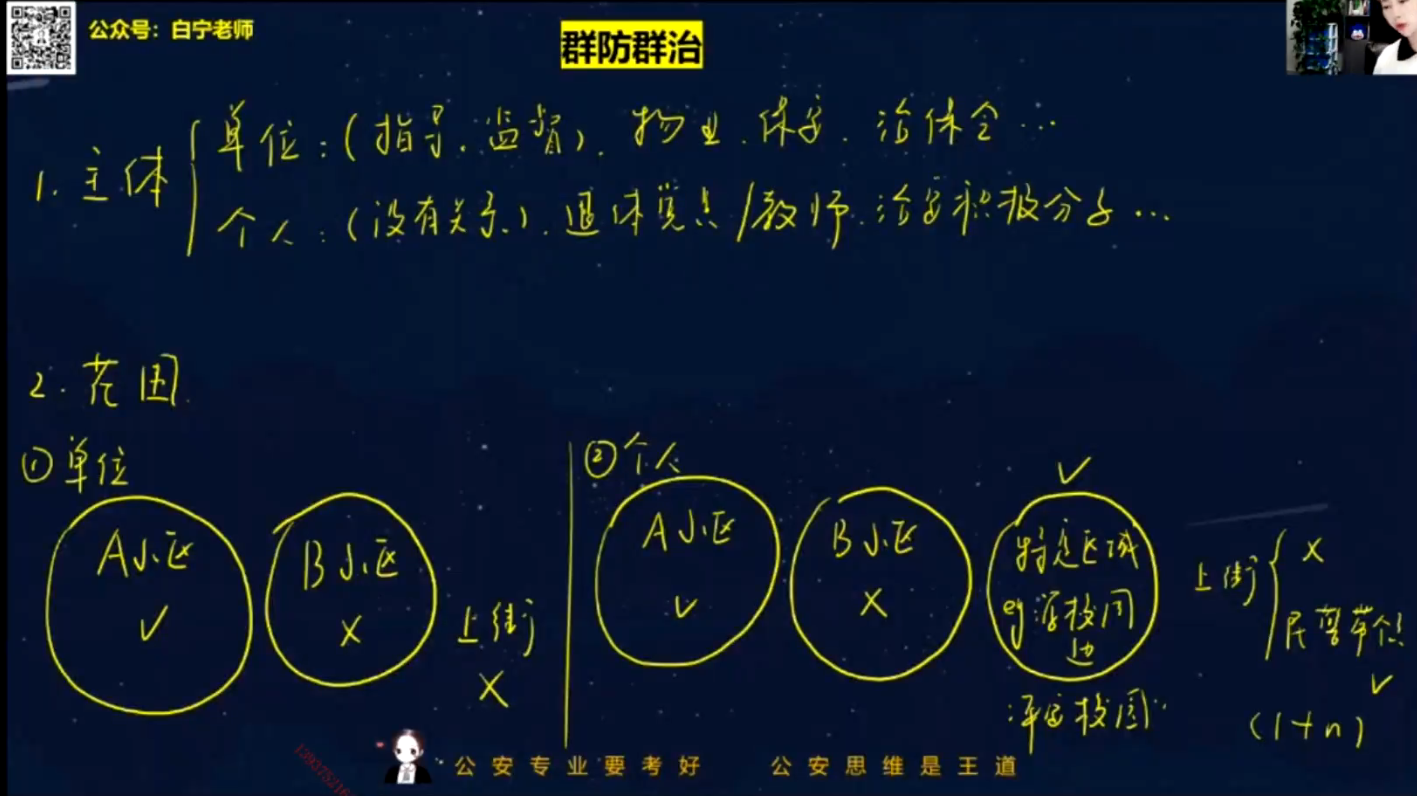 公众号：白宁老师
群防群治
1. 主体
单位：(指导、监督)、物业、保安、治保会…
个人：(没有关系)、退休党员/教师、治安积极分子…
2. 范围
①单位
A小区 ✓
B小区 ×
上街 ×
②个人
A小区 ✓
B小区 ×
✓
特定区域
eg 学校周
边
平安校园
上街
×
民警带个人 ✓
(1+n)
公安专业要考好 公安思维是王道